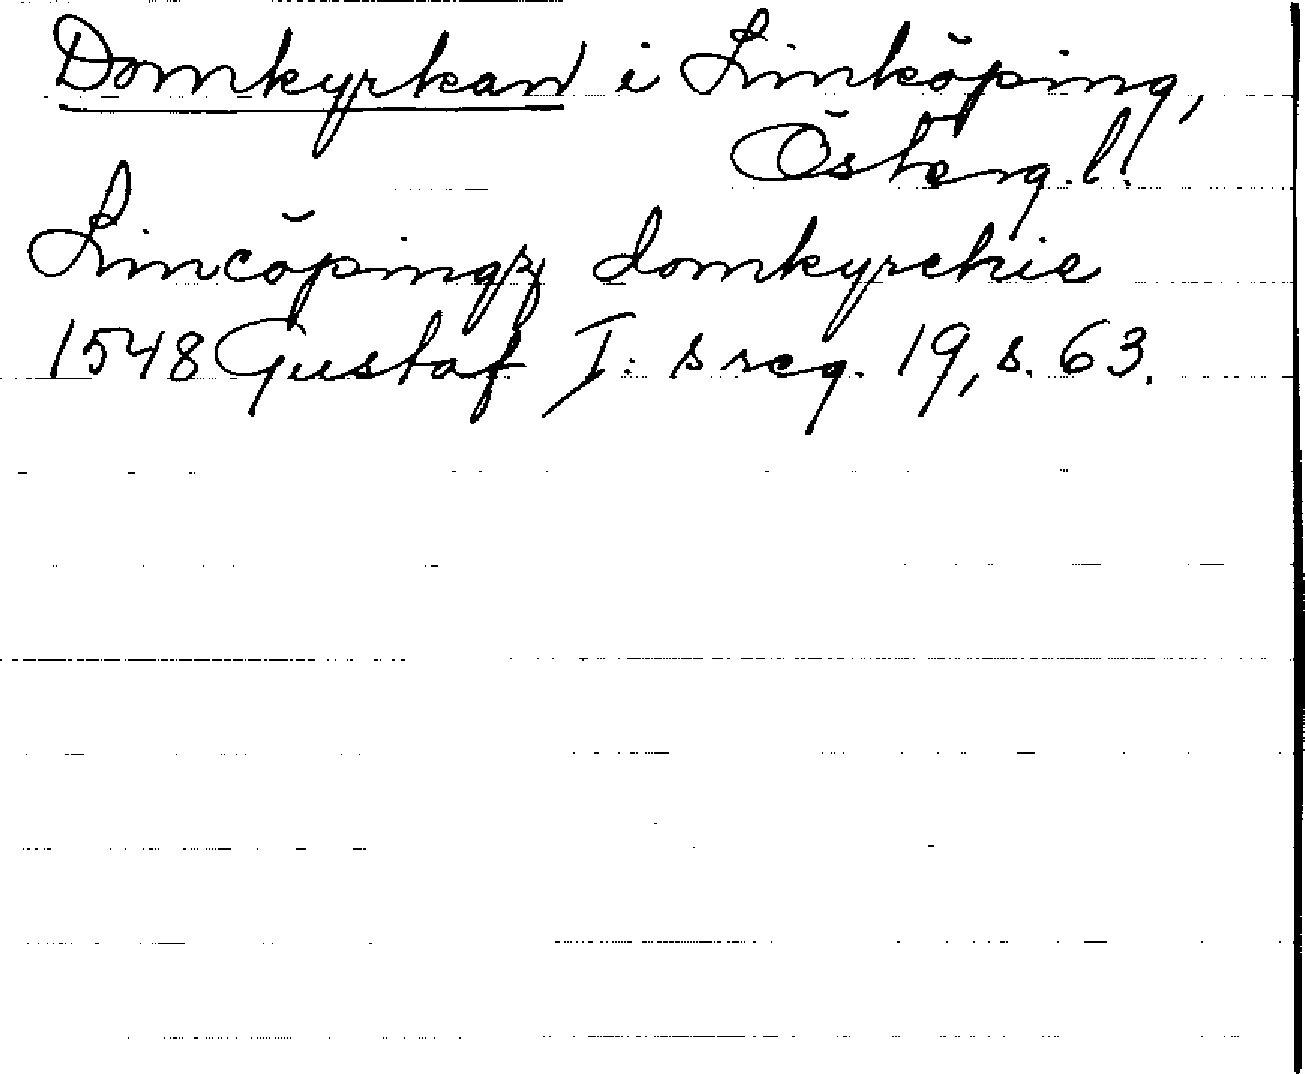 Domkyrkan i Linköping,
Österg. l.
Lincöpingz domkyrchie
1548 Gustaf I: s reg. 19, s. 63.